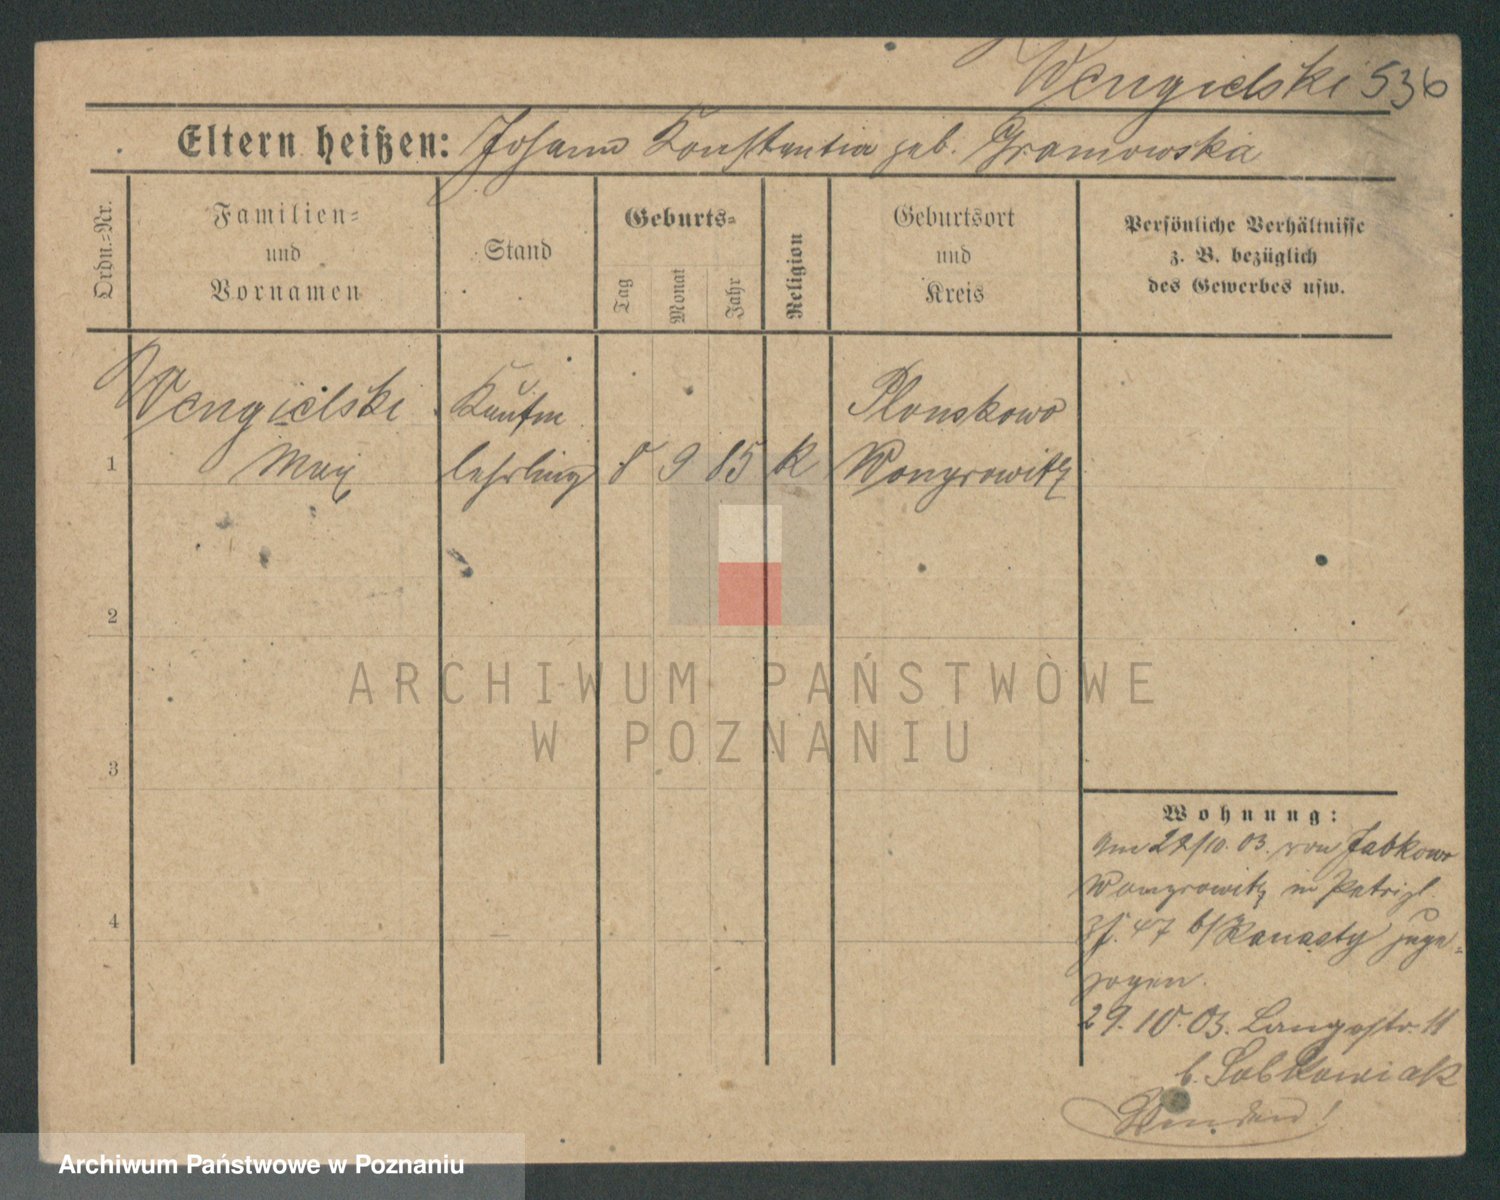 Wengielski 536
Eltern heißen: Johann Konstantia geb. Gramowska
Ordn.-Nr.
Familien-
und
Vornamen
Stand
Geburts-
Tag
Monat
Jahr
Religion
Geburtsort
und
Kreis
Persönliche Verhältnisse
z. B. bezüglich
des Gewerbes usw.
Wengielski Kaufm Plonskowo
1 Max lehrling 8 9 85 K Wongrowitz
2
ARCHIWUM PAŃSTWOWE
W POZNANIU
3
Wohnung:
am 22/10. 03. von Jabkowo
Wongrowitz in
47 b/ zuge-
zogen.
29. 10. 03. Langestr. 11
b. Sobkowiak
4
Wenden!
Archiwum Państwowe w Poznaniu